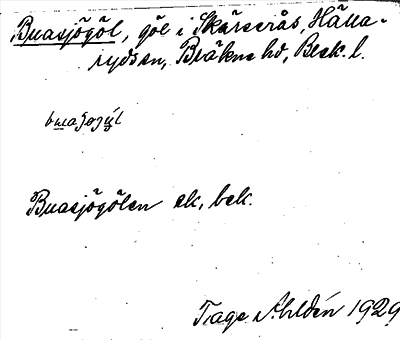 Buasjögöl, göl i Skärserås, Hälla-
ryds sn, Bräkne hd, Blek. l.
Buasjögölen ek, bek.
Tage Ahldén 1929